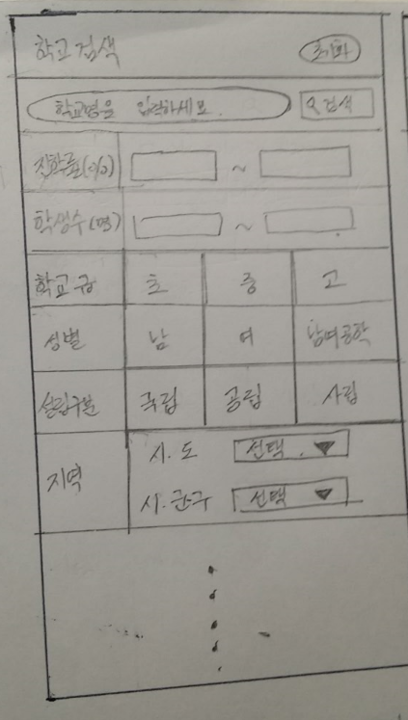 학교검색 초기화
학교명을 입력하세요. 검색
진학률(%) ~
학생수(명) ~
학교급 초 중 고
성별 남 여 남여공학
설립구분 국립 공립 사립
지역 시.도 선택 ▼
시.군구 선택 ▼